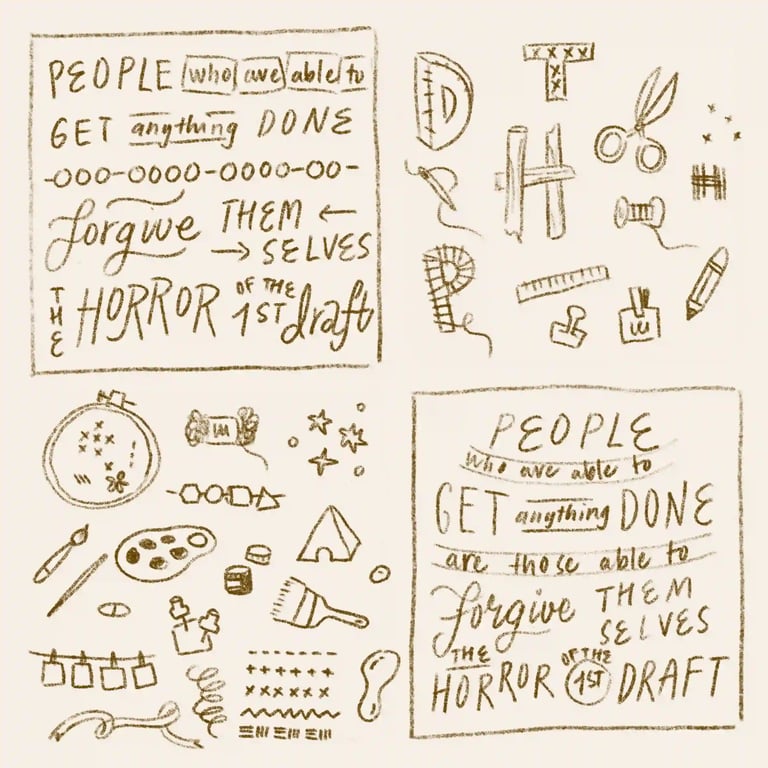 PEOPLE who are able to
GET anything DONE
forgive THEM
SELVES
THE HORROR OF THE 1ST draft
D
T
H
R
PEOPLE
who are able to
GET anything DONE
are those able to
forgive THEM
SELVES
THE HORROR OF THE 1ST DRAFT